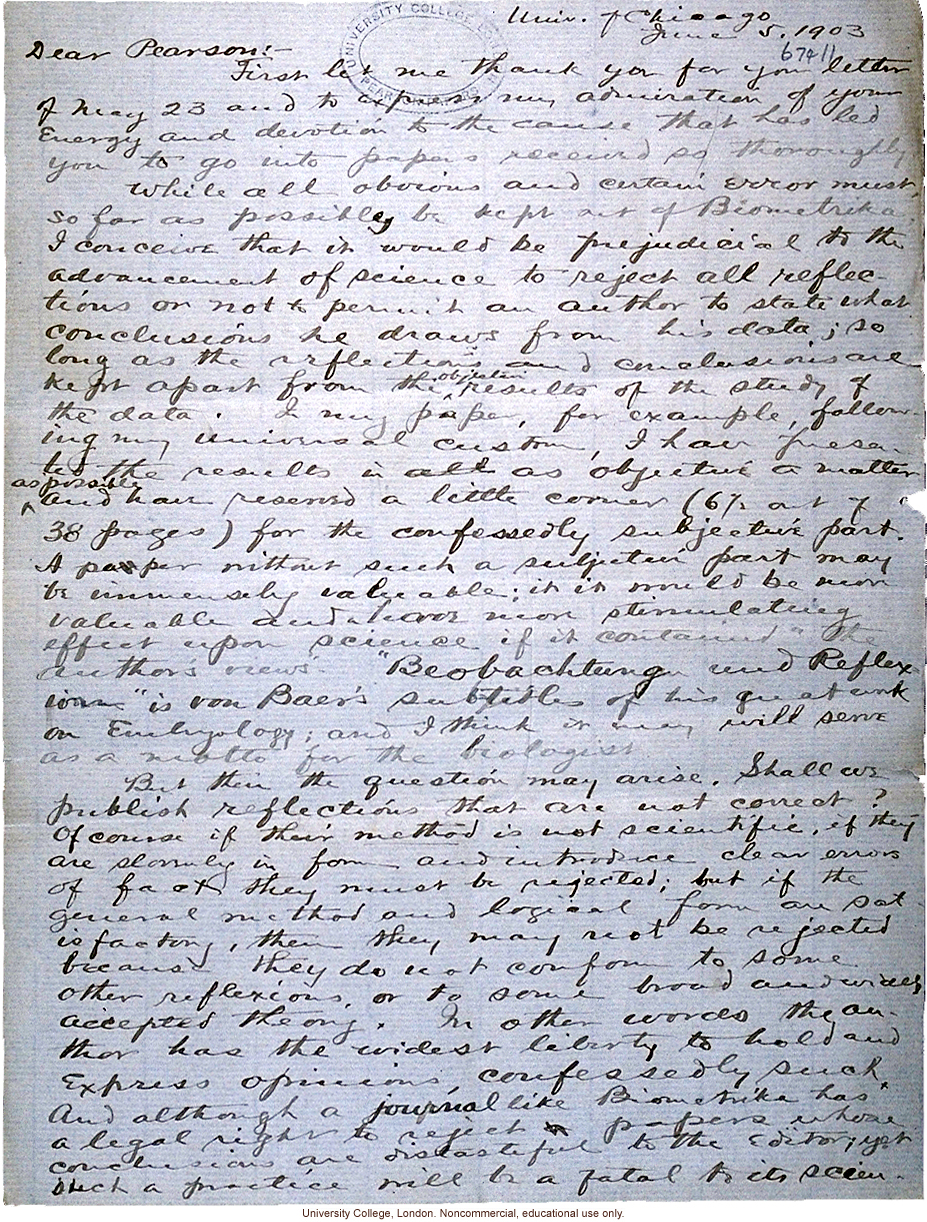 Univ. of Chicago
June 5, 1903
674/1
UNIVERSITY COLLEGE LONDON
PEARSON PAPERS
Dear Pearson:-
First let me thank you for your letter
of May 23 and to express my admiration of your
Energy and devotion to the cause that has led
you to go into papers received so thoroughly.
While all obvious and certain error must
so far as possibly be kept out of Biometrika
I conceive that it would be prejudicial to the
advancement of science to reject all reflec-
tions or not to permit an author to state what
conclusions he draws from his data; so
long as the reflections and conclusions are
kept apart from the objective results of the study of
the data. In my paper, for example, follow-
ing my universal custom, I have presen-
ted the results in as objective a matter
as possible
and have reserved a little corner (6½ out of
38 pages) for the confessedly subjective part.
A paper without such a subjective part may
be immensely valuable; it would be more
valuable and have more stimulating
effect upon science if it contained "the
author's views" "Beobachtung und Reflex-
ion" is von Baer's subtitles of his great work
on Embryology; and I think it may will serve
as a motto for the biologist
But then the question may arise. Shall we
publish reflections that are not correct?
Of course if their method is not scientific, if they
are slovenly in form and introduce clear errors
of fact they must be rejected; but if the
general method and logical form are sat-
isfactory, then they may not be rejected
because they do not conform to some
other reflexions, or to some broad and widely
accepted theory. In other words the au-
thor has the widest liberty to hold and
Express opinions, confessedly such.
And although a journal like Biometrika has
a legal right to reject papers whose
conclusions are distasteful to the Editor, yet
such a practice will be a fatal to its scien-
University College, London. Noncommercial, educational use only.